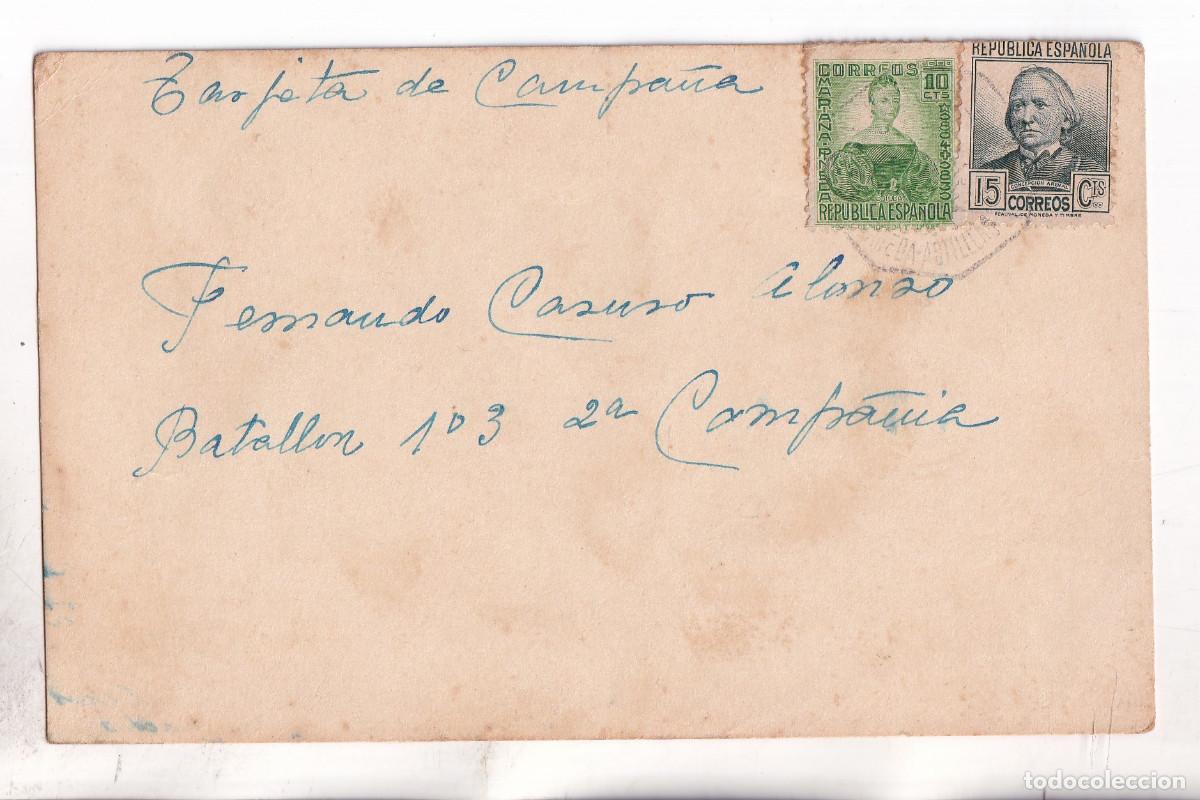 Tarjeta de Campaña
CORREOS
10
CTS
MARIANA PINEDA
REPUBLICA ESPAÑOLA
REPUBLICA ESPAÑOLA
CONCEPCION ARENAL
15 CTS
CORREOS
Fernando Casuso Alonso
Batallon 103 2ª Compañia
todocoleccion